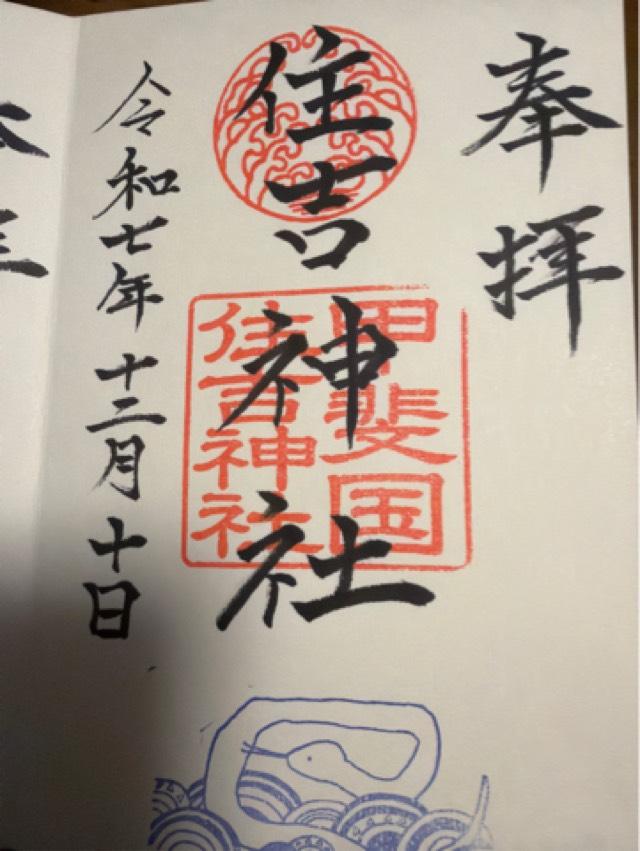 奉拝
住吉神社
甲斐国
住吉神社
令和七年十二月十日